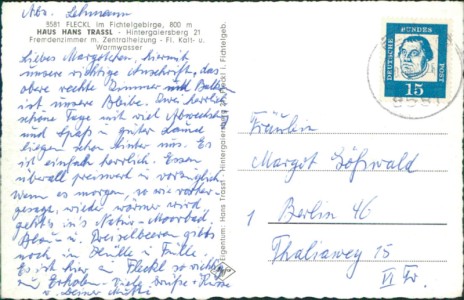 Abs. Lehmann
3581 FLECKL im Fichtelgebirge, 800 m
HAUS HANS TRASSL - Hintergaiersberg 21
Fremdenzimmer m. Zentralheizung - Fl. Kalt- u.
Warmwasser
Liebes Margotchen, hiermit
unsere richtige Anschrift, das
obere rechte Zimmer mit Balkon
ist unsere Bleibe. Zwei herrlich
schöne Tage mit viel Abwechslg
und Spaß u. guter Laune
liegen schon hinter uns. Es
ist einfach herrlich. Essen
überall preiswert u. vorzüglich.
Wenn es morgen, so wie vorher-
gesagt, wieder wärmer wird
geht's ins Natur-Moorbad
Blau- u. Preiselbeeren gibts
noch in Hülle u. Fülle.
Es ist hier in Fleckl so richtig
zu Erholen. Viele Grüße + Küsse
Eigentum: Hans Trassl, Hintergaiersberg 21, Fleckl i. Fichtelgeb.
DEUTSCHE
BUNDES
POST
15
Fräulein
Margot Gößwald
1 Berlin 46
Thaliaweg 15